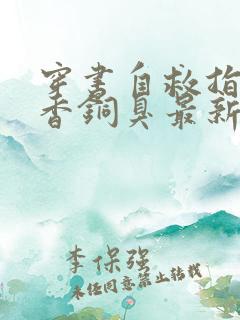 穿书自救指
香铜臭最新
李保强
未经同意禁止转载